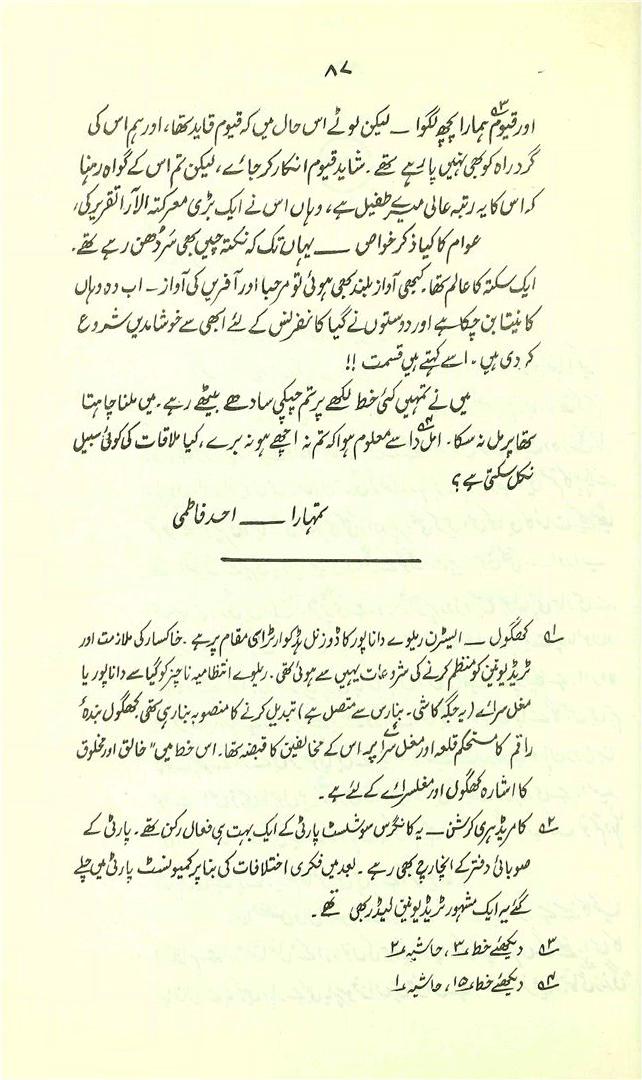 ۸۷
اور قیوم۳؎ ہمارا پچھ لگوا — لیکن لوٹے اس حال میں کہ قیوم قاید تھا، اور ہم اس کی
گرد راہ کو بھی نہیں پا رہے تھے۔ شاید قیوم انکار کر جائے، لیکن تم اس کے گواہ رہنا
کہ اس کا یہ رتبہ عالی میرے طفیل ہے، وہاں اس نے ایک بڑی معرکتہ الآرا تقریر کی،
عوام کا کیا ذکر خواص — یہاں تک کہ نکتہ چیں بھی سر دُھن رہے تھے۔
ایک سکتہ کا عالم تھا۔ کبھی آواز بلند بھی ہوئی تو مرحبا اور آفریں کی آواز — اب وہ وہاں
کا نیتا بن چکا ہے اور دوستوں نے گیا کانفرنس کے لئے ابھی سے خوشامدیں شروع
کر دی ہیں۔ اسے کہتے ہیں قسمت !!
میں نے تمہیں کئی خط لکھے پر تم چپکی سادھے بیٹھے رہے۔ میں ملنا چاہتا
تھا پر مل نہ سکا۔ امل دا۴؎ سے معلوم ہوا کہ تم نہ اچھے ہو نہ برے، کیا ملاقات کی کوئی سبیل
نکل سکتی ہے؟
تمہارا — احمد فاطمی
۱؎ کھگول — ایسٹرن ریلوے داناپور کا ڈوزنل ہڈکوارٹر اسی مقام پر ہے۔ خاکسار کی ملازمت اور
ٹریڈ یونین کو منظم کرنے کی شروعات یہیں سے ہوئی تھی۔ ریلوے انتظامیہ ناچیز کو گیا سے داناپور یا
مغل سرائے (یہ جگہ کاشی۔ بنارس سے متصل ہے) تبدیل کرنے کا منصوبہ بنا رہی تھی۔ کھگول بندۂ
راقم کا مستحکم قلعہ اور مغل سرائے پر اس کے مخالفین کا قبضہ تھا۔ اس خط میں "خالق اور مخلوق
کا اشارہ کھگول اور مغلسرائے کے لئے ہے۔
۲؎ کامریڈ ہری کرشن — یہ کانگرس سوشلسٹ پارٹی کے ایک بہت ہی فعال رکن تھے۔ پارٹی کے
صوبائی دفتر کے انچارج بھی رہے۔ بعد میں فکری اختلافات کی بنا پر کمیونسٹ پارٹی میں چلے
گئے یہ ایک مشہور ٹریڈ یونین لیڈر بھی تھے۔
۳؎ دیکھئے خط ۳، حاشیہ ۲
۴؎ دیکھئے خط ۱۵، حاشیہ ۱